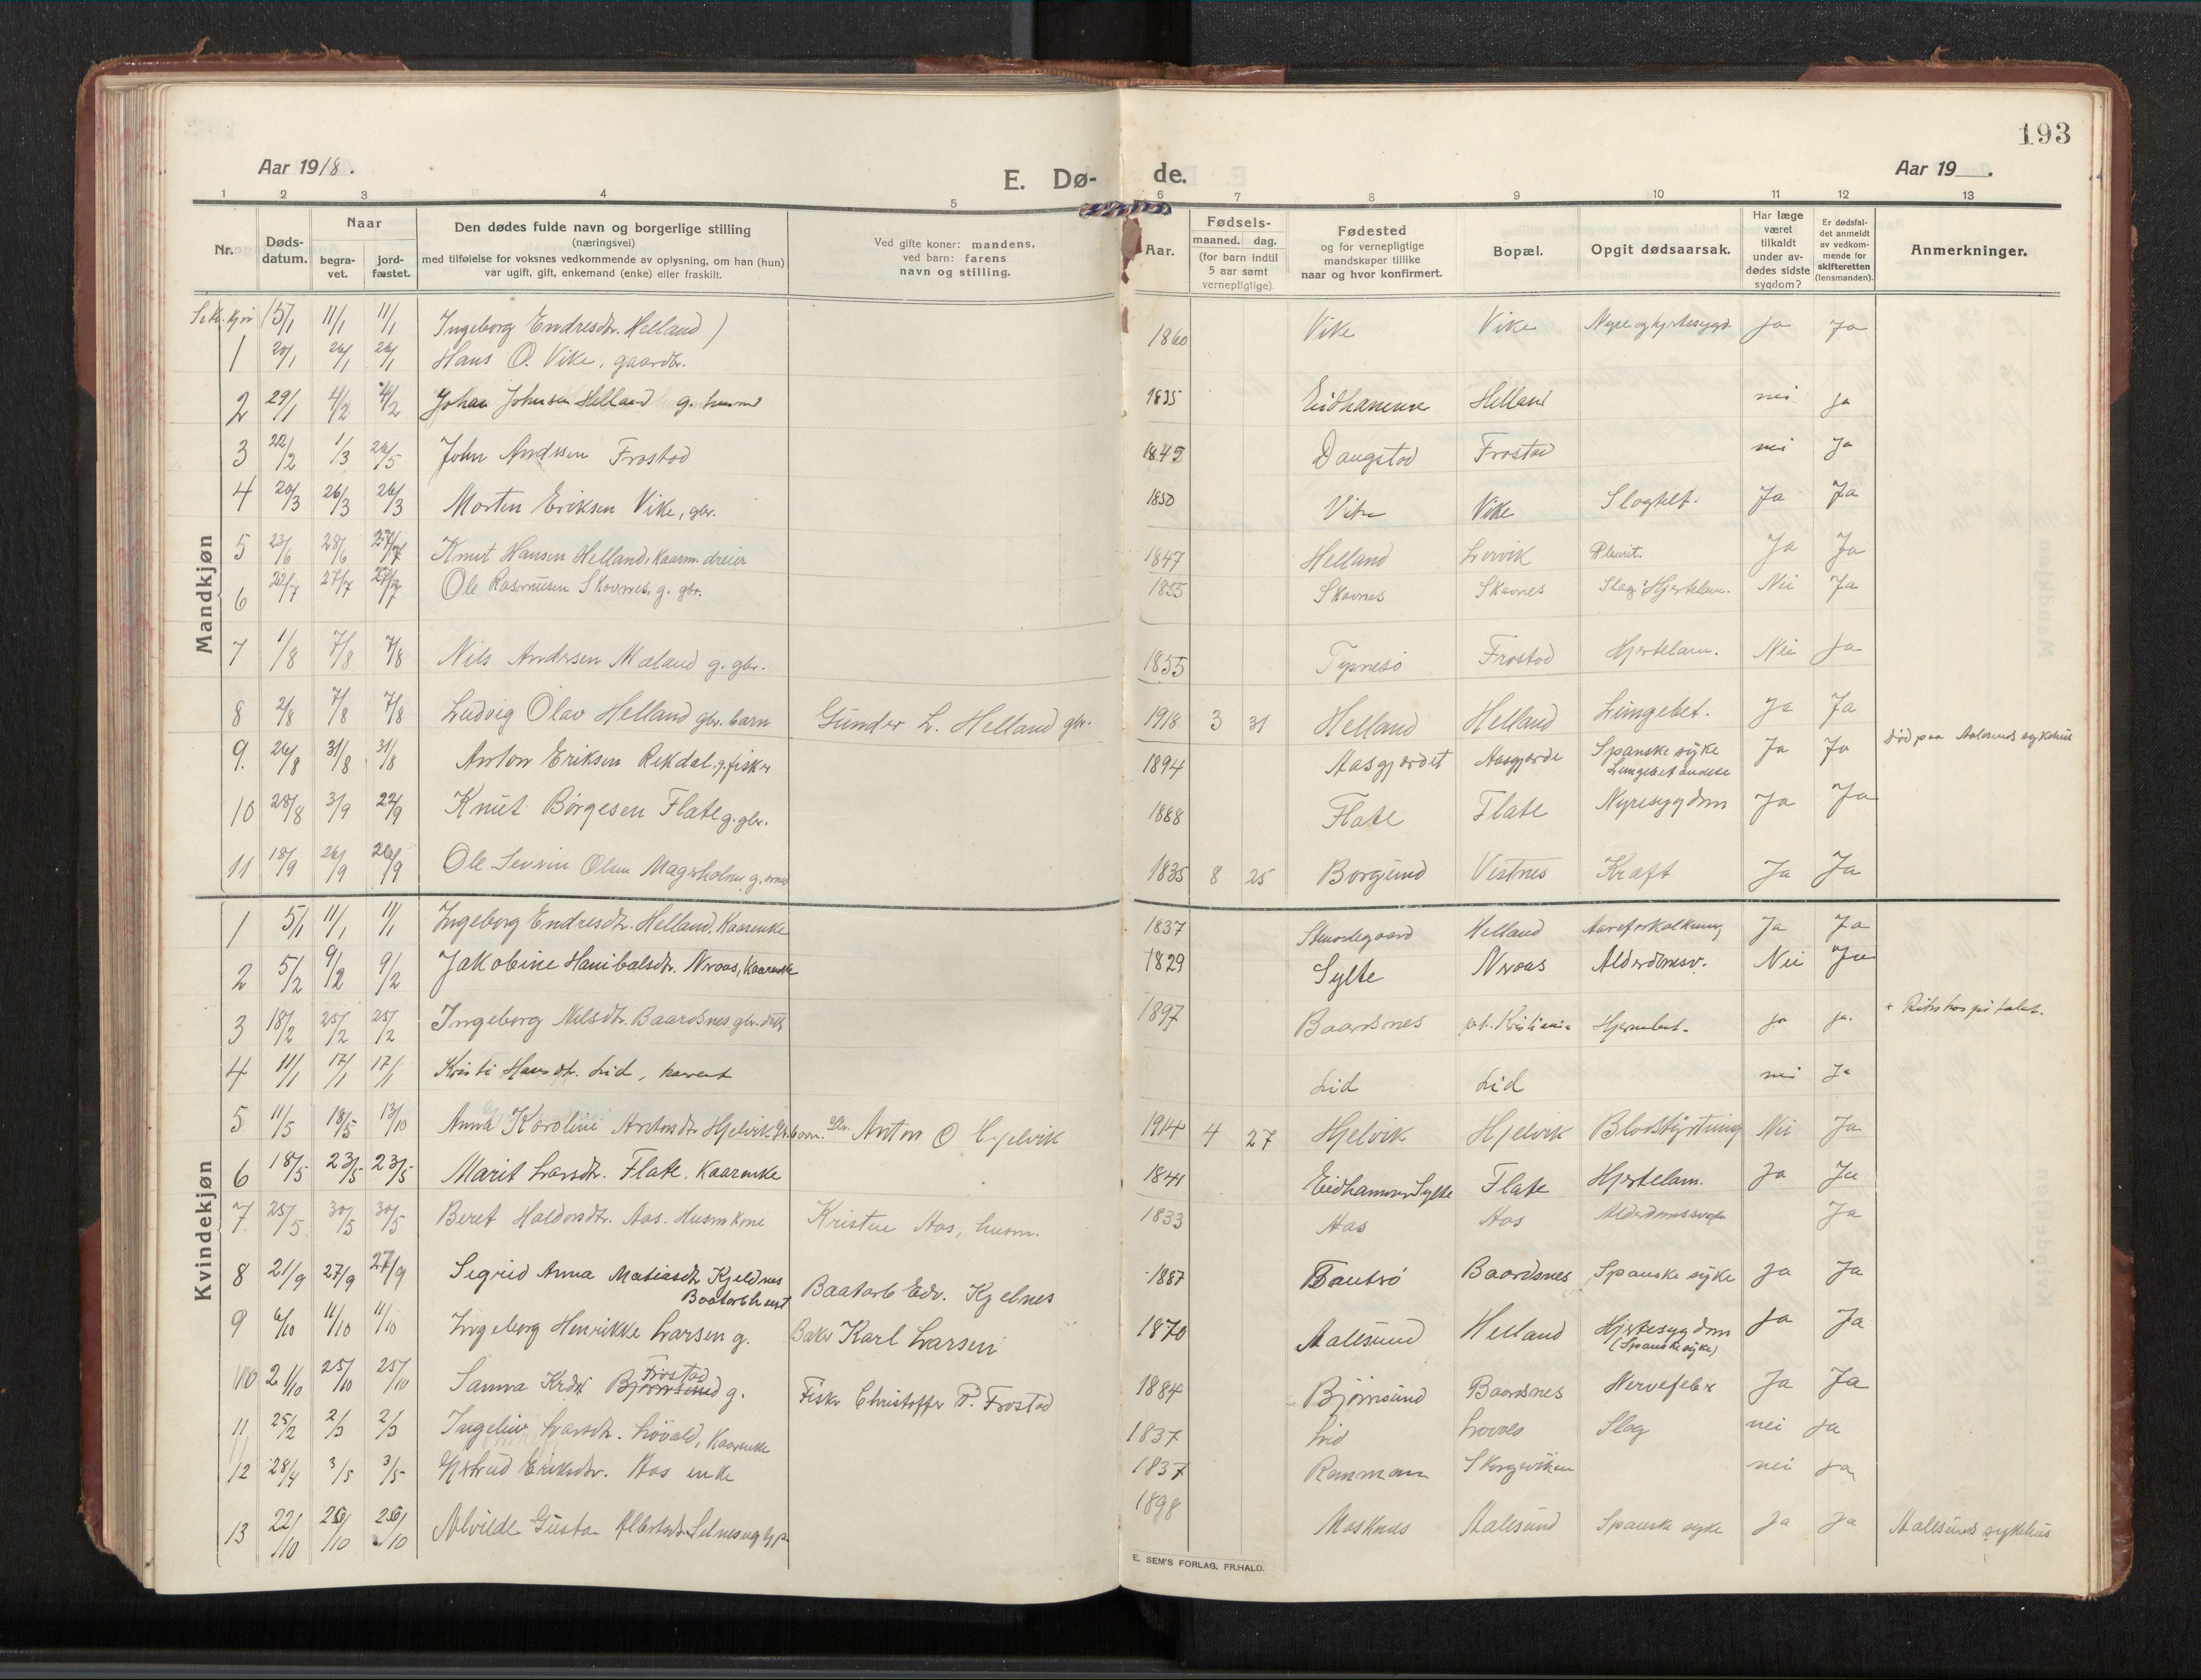 193
Aar 1918.
E. Dø-
de.
Aar 19 .
1 2 3 4 5 6 7 8 9 10 11 12 13
Nr.
Døds-
datum.
Naar
begra-
vet.
jord-
fæstet.
Den dødes fulde navn og borgerlige stilling
(næringsvei)
med tilføielse for voksnes vedkommende av oplysning, om han (hun)
var ugift, gift, enkemand (enke) eller fraskilt.
Ved gifte koner: mandens,
ved barn: farens
navn og stilling.
Aar.
Fødsels-
maaned. dag.
(for barn indtil
5 aar samt
vernepligtige)
Fødested
og for vernepligtige
mandskaper tillike
naar og hvor konfirmert.
Bopæl.
Opgit dødsaarsak.
Har læge
været
tilkaldt
under av-
dødes sidste
sygdom?
Er dødsfal-
det anmeldt
av vedkom-
mende for
skifteretten
(lensmanden).
Anmerkninger.
Mandkjøn
(5/1 11/1 11/1 Ingeborg Endresdtr. Helland)
1 20/1 26/1 26/1 Hans O. Vike, gaardbr. 1860 Vike Vike Nyre og hjrtesygd. Ja Ja
2 29/1 4/2 4/2 Johan Johnsen Helland g. husmd 1835 Eidhammer Helland nei ja
3 22/2 1/3 26/5 John Andrsen Frostad 1845 Daugstad Frostad nei Ja
4 20/3 26/3 26/3 Morten Eriksen Vike, gbr. 1850 Vike Vike Slagtilf. Ja Ja
5 23/6 28/6 27/7 Knut Hansen Helland, Kaarm. dreier 1847 Helland Lervik Pleurit. Ja Ja
6 22/7 27/7 27/7 Ole Rasmusen Skovnes, g. gbr. 1855 Skavnes Skavnes Slag? Hjertelam. Nei Ja
7 1/8 7/8 7/8 Nils Andrsen Maland g. gbr. 1855 Frostad Hjrtelam. Nei Ja
8 2/8 7/8 7/8 Ludvig Olav Helland gbr. barn Gunder L. Helland gbr. 1918 3 31 Helland Helland Lungebet. Ja Ja
9. 26/8 31/8 31/8 Anton Eriksen Rekdal, g. fisker 1894 Aasgjerdet Aasgjerde Spanske syke Ja Ja Død paa Aalesunds sykehus
Lungebetændese
10 28/8 3/9 22/9 Knut Børgesen Flate g. gbr. 1888 Flate Flate Nyresygdom Ja Ja
11 18/9 26/9 26/9 Ole Sevrin Olsen Magerholm g. 1835 8 25 Borgund Vestnes Kræft Ja Ja
Kvindekjøn
1 5/1 11/1 11/1 Ingeborg Endresdtr. Helland, Kaarenke 1837 Helland Aareforkalkning Ja Ja
2 5/2 9/2 9/2 Jakobine Hanibalsdtr. Nroas, Kaarenke 1829 Sylte Nroas Alderdomssv. Nei Ja
3 18/2 25/2 25/2 Ingeborg Nilsdtr. Baardsnes gbr. datt 1897 Baardsnes p.t. Kristiania Hjernebet. ja ja. + Rikshospitalet.
4 11/1 17/1 17/1 Kristi Hansdtr. Lid, Lid Lid nei Ja
5 11/5 18/5 13/10 Anna Karoline Antonsdtr Hjelvik Gbr. barn. Gbr. Anton O Hjelvik 1914 4 27 Hjelvik Hjelvik Blodstyrtning Nei Ja
6 18/5 23/5 23/5 Marit Larsdtr. Flate. Kaarenke 1841 Eidhammer Sylte Flate Hjrtelam. Ja Ja
7 25/5 30/5 30/5 Beret Haldorsdtr. Aas. Husm kone Kristen Aas, husm. 1833 Aas Aas Alderdomssvagh Ja
8 21/9 27/9 27/9 Sigrid Anna Matiasdtr Kjeldnes Baatarb Edv. Kjelnes 1887 Tautrø Baardsnes Spanske syke Ja Ja
9 6/10 11/10 11/10 Ingeborg Henrikke Larsen g. Baker Karl Larsen 1870 Aalesund Helland Hjrtesygdom Ja Ja
(Spanske syke)
10 21/10 25/10 25/10 Sanna Krdtr Bjørnsund Frostad g. Fiskr Christoffer P. Frostad 1884 Bjørnsund Baardsnes Nervefeber Ja Ja
11 25/2 2/3 2/3 Ingeliv Larsdtr. Løvald, Kaarenke 1837 Lid Slag nei Ja
12 28/4 3/5 3/5 Gjertrud Eriksdtr. Aas enke 1837 Skorgeviken nei Ja
13 22/10 26/10 26/10 Alvilde Gusta 1898 Masknes Aalesund Spanske syke Ja Ja Aalesunds sykehus
E. SEM'S FORLAG, FR.HALD.